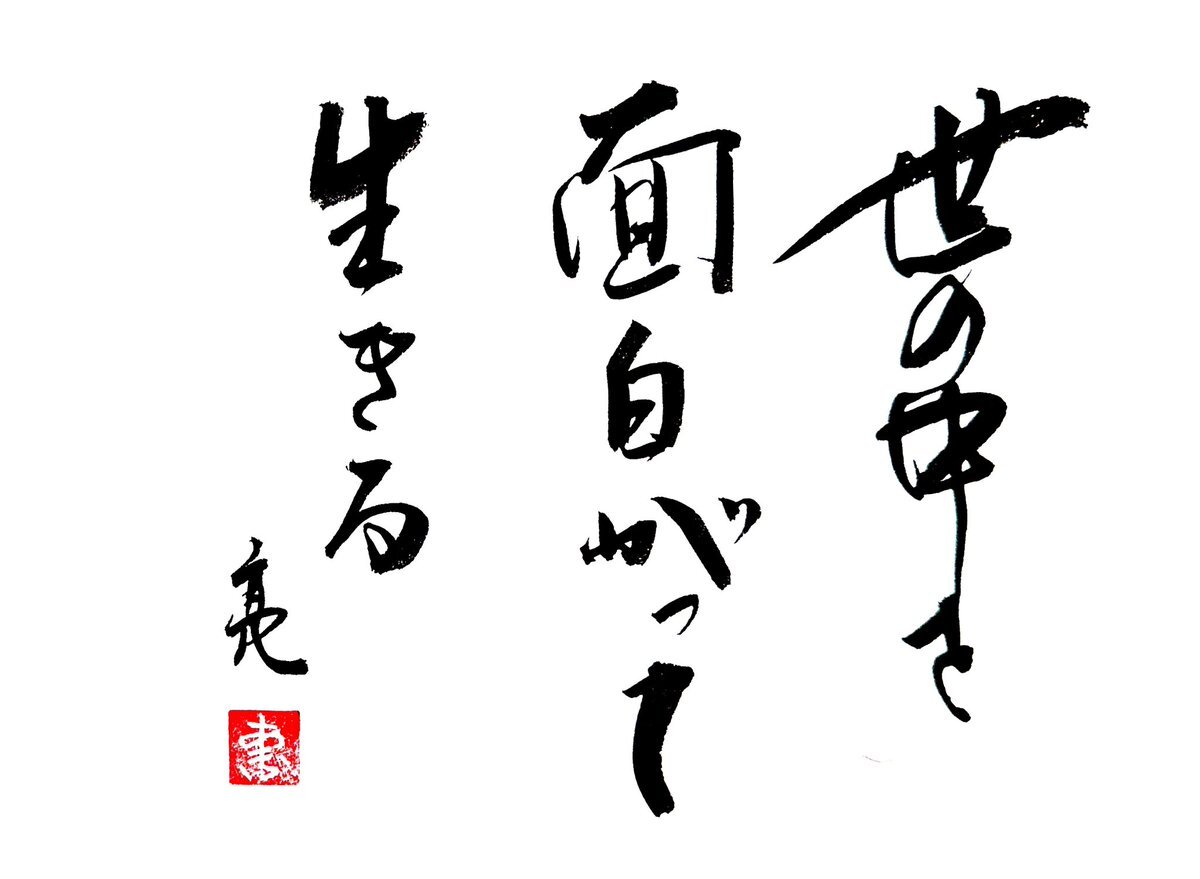 世の中を
面白がって
生きる
亮